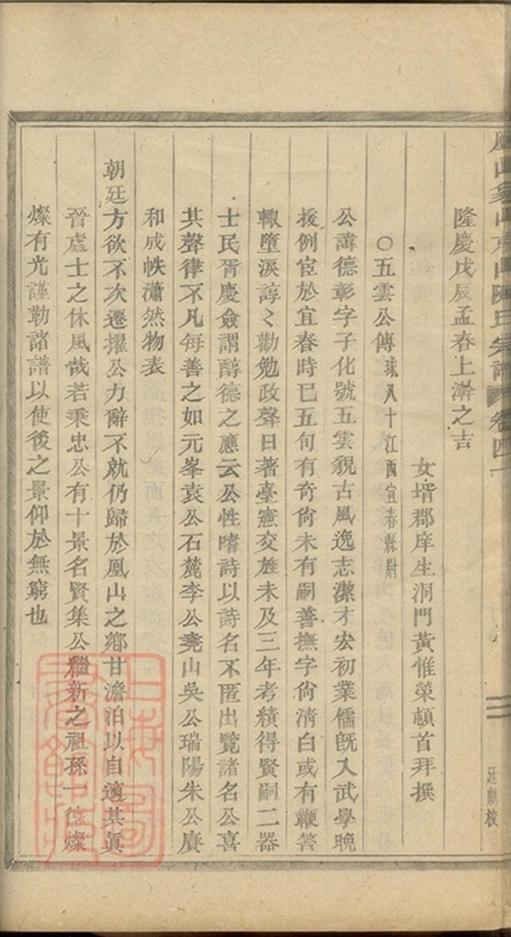 隆慶戊辰孟春上澣之吉
女壻郡庠生洞門黃惟榮頓首拜撰
○五雲公傳 球八十江西宜春縣尉
公諱德彰字子化號五雲貌古風逸志潔才宏初業儒旣入武學晚
援例宦於宜春時已五旬有奇尙未有嗣善撫字尙清白或有鞭笞
輙墮淚諄〻勸勉政聲日著臺憲交旌未及三年考績得賢嗣二器
士民胥慶僉謂醇德之應云公性嗜詩以詩名不匿出覽諸名公喜
其聲律不凡每善之如元峯袁公石麓李公堯山吳公瑞陽朱公賡
和成帙瀟然物表
朝廷方欲不次遷擢公力辭不就仍歸於鳳山之鄉甘澹泊以自適其眞
晉處士之休風哉若秉忠公有十景名賢集公繼新之祖孫一德燦
燦有光謹勒諸譜以使後之景仰於無窮也
陳氏宗譜 卷四
廷獻校